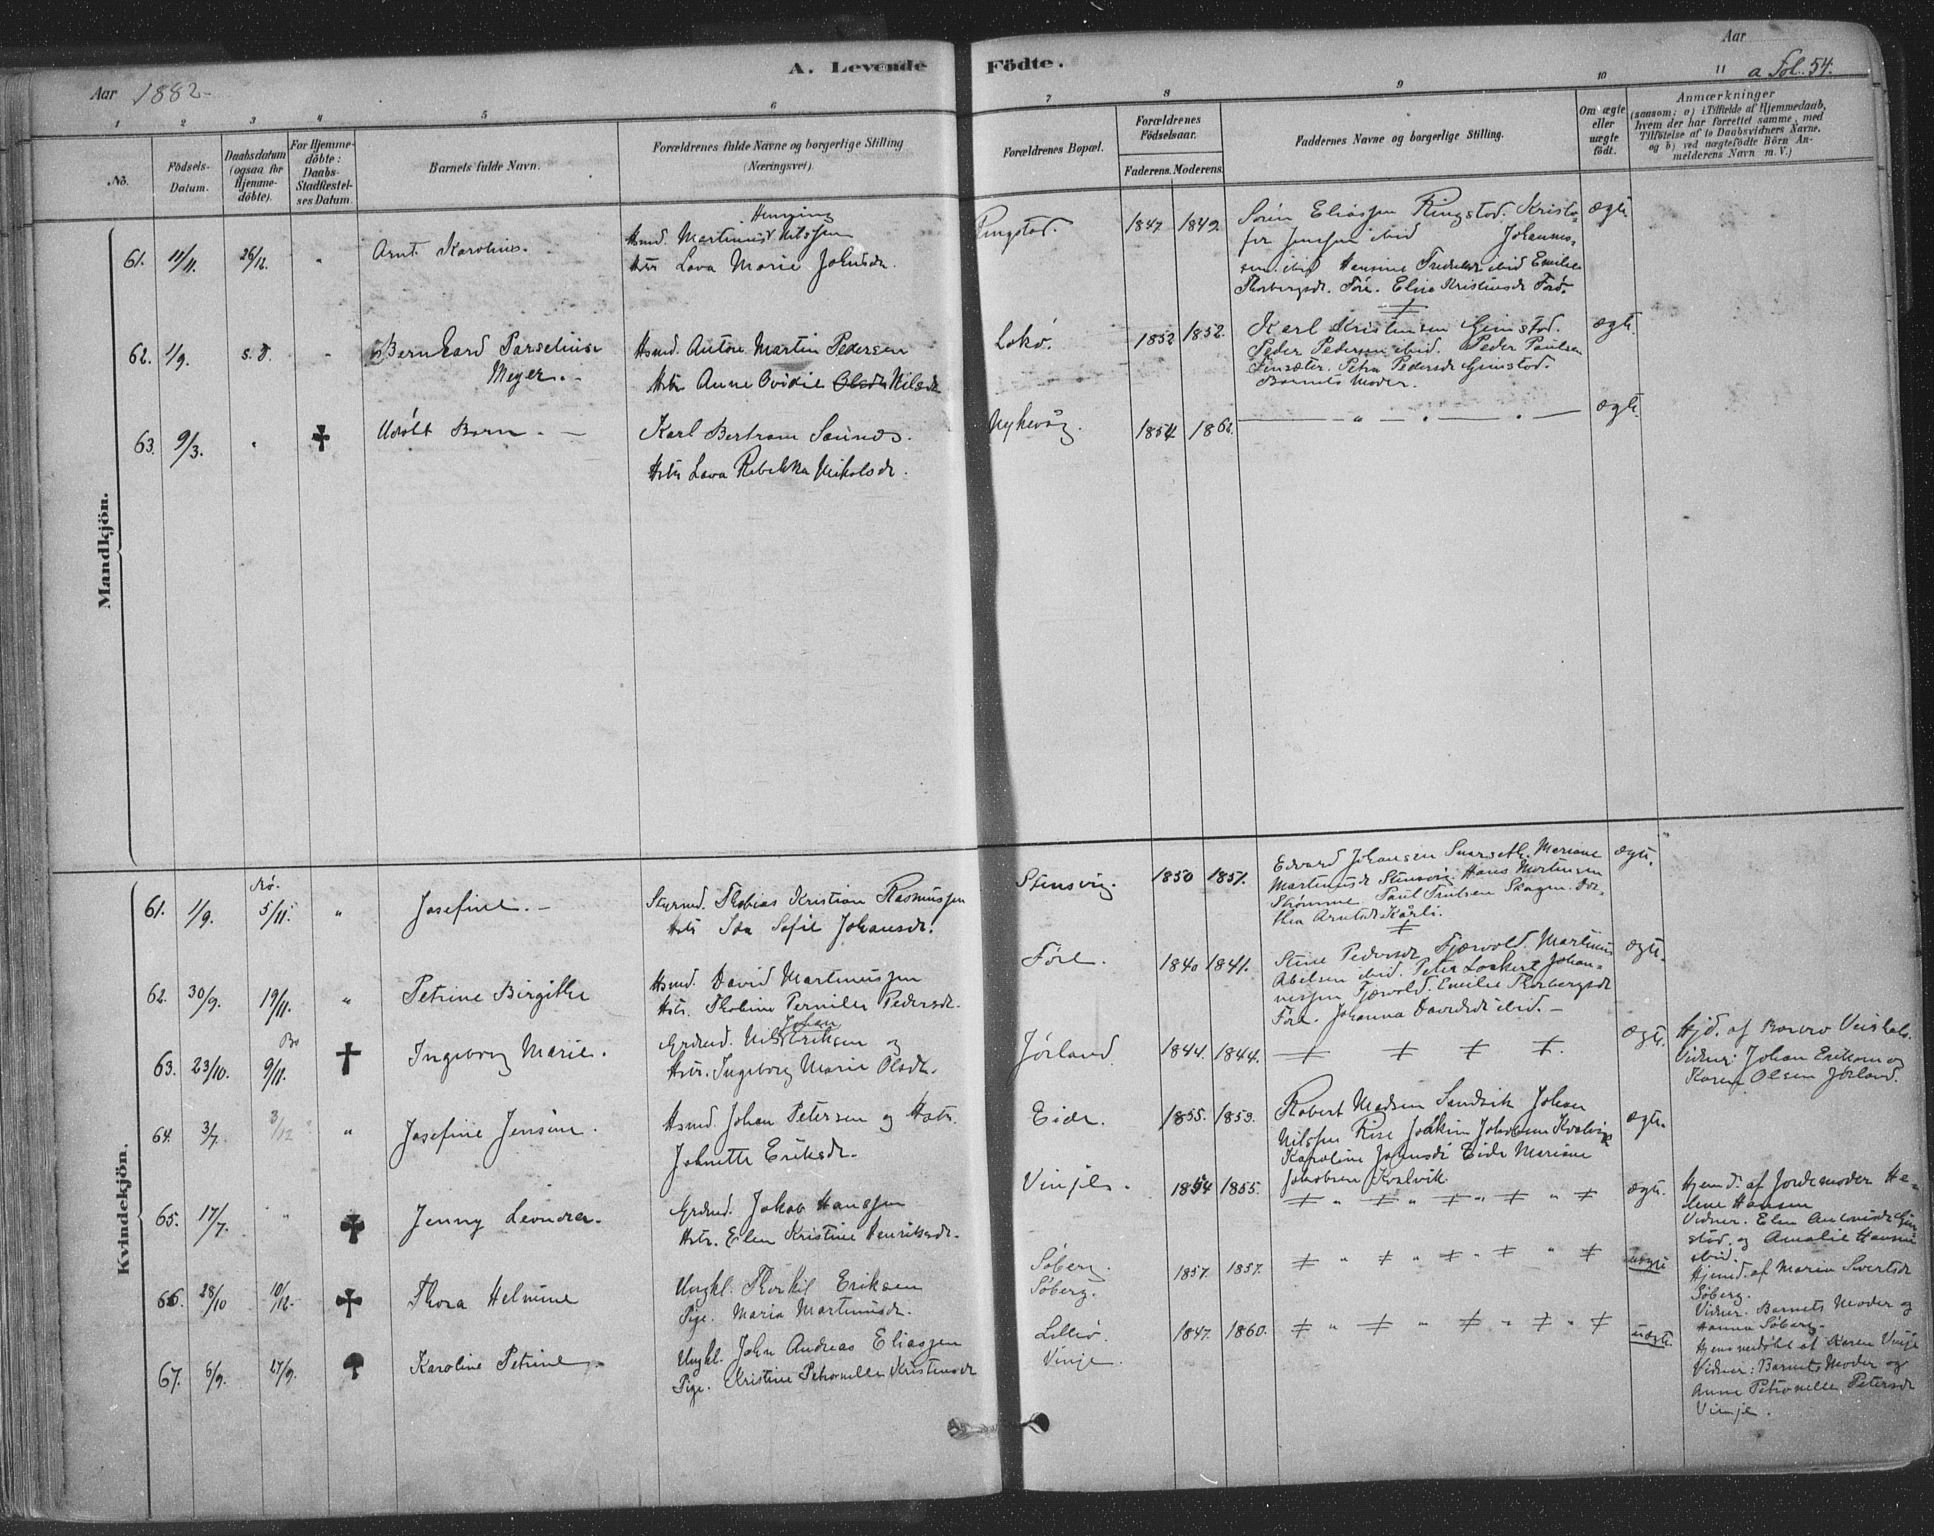 A. Levende Födte.
Aar 1882.
Aar
a Fol. 54.
1 2 3 4 5 6 7 8 9 10 11
No.
Födsels-Datum.
Daabsdatum (ogsaa for Hjemmedöbte).
For Hjemmedöbte: Daabs-Stadfæstelses Datum.
Barnets fulde Navn.
Forældrenes fulde Navne og borgerlige Stilling (Næringsvei).
Forældrenes Bopæl.
Forældrenes Födselsaar.
Faderens. Moderens.
Faddernes Navne og borgerlige Stilling.
Om ægte eller uægte födt.
Anmærkninger
(saasom: a) i Tilfælde af Hjemmedaab, hvem der har forrettet samme, med Tilföielse af to Daabsvidners Navne, og b) ved uægtefödte Börn Anmelderens Navn m. V.)
Mandkjön.
61. 11/11. 26/12. " Arnt Karolius. Hsmd. Martinus Henning Nilssen
Hstr Lava Marie Johnsdr. Ringstad. 1847 1849.
Sørin Eliassen Ringstad. Kristo-
fer Jenssen ibid Johannes-
sen ibid Hansine Fredriksdr ibid Emilie
Thorbergsdr. Føre. Elise Kristensdr Førd. ægte
62. 1/9. s.d. " Bernhard Parselius
Meyer. Hsmd. Antone Martin Pedersen
Hstr Anne Ovidie Olsdr Nilsdr Lokø. 1852 1852.
Karl Kristensen Gimstad.
Peder Pedersen ibid. Peder Paulsen
Finsæter. Petra Pedersdr Gimstad.
Barnets Moder. ægte
63. 9/3. " Udøbt Barn. Karl Bertram Saunds.
Hstr Lava Rebekka Nikolsdr. Nykvåg. 1854 1862. ægte.
Kvindekjön.
61. 1/9. 5/11. " Josefine. Styrmd. Thobias Kristian Rasmussen
Hstr Ida Sofie Johansdr. Stensvig. 1850 1851.
Edvard Johansen Snarseth. Mariane
Martinusdr Stensvig. Hans Mortensen
Strømme. Paul Trulsen Skagen. Do-
thea Arntsdr Kårli. ægte.
62. 30/9. 19/11. " Petrine Birgitte Hsmd. David Martinussen
Hstr. Thobine Pernille Pedersdr. Føre. 1840 1841.
Stine Pedersdr Fjærvold. Martinus
Abelsen ibid. Peter Lockert Johan-
nessen Fjærvold. Emilie Thorbergsdr
Føre. Johanna Davidsdr ibid. ægte.
63. 23/10. 9/11. Ingeborg Marie. Grdmd. Nils Johan Eriksen og
Hstr. Ingeborg Marie Olsdr. Jørland 1844. 1844. ægte.
Hjd. af Barbro
Vidner: Johan Eriksen og
Karen Olsen Jørland.
64. 3/7. 3/12 " Josefine Jensine. Hsmd. Johan Petersen og Hstr.
Johnette Eriksdr. Eide. 1855. 1853.
Robert Madsen Sandvik Johan
Nilssen Rise Joakim Jakobsen Kvalvig
Karoline Johnsdr Eide Mariane
Jakobsen Kvalvik ægte.
65. 17/7. " Jenny Leondra. Grdmd. Jakob Hanssen
Hstr. Elen Kristine Henriksdr. Vinje. 1854 1855. ægte.
Hjemd. af Jordemoder He-
lene Hansen
Vidner. Elen Antonisdr Gim-
stad. og Amalie Hansen
ibid.
66. 28/10 10/12. Thora Helmine Ungkl. Thorkil Eriksen
Pige. Maria Martinusdr. Søberg.
Søberg. 1857. 1857. uægte
Hjemd. af Maria Sivertsdr
Søberg.
Vidner. Barnets Moder og
Hanna Søberg.
67. 6/9. 27/9. Karoline Petrine. Ungkl. John Andreas Eliassen
Pige. Kristine Petronelle Kristensdr Lillø.
Vinje. 1847. 1860. uægte.
Hjemmedøbt af Karen Vinje
Vidner: Barnets Moder og
Anne Petronelle Petersdr
Vinje.